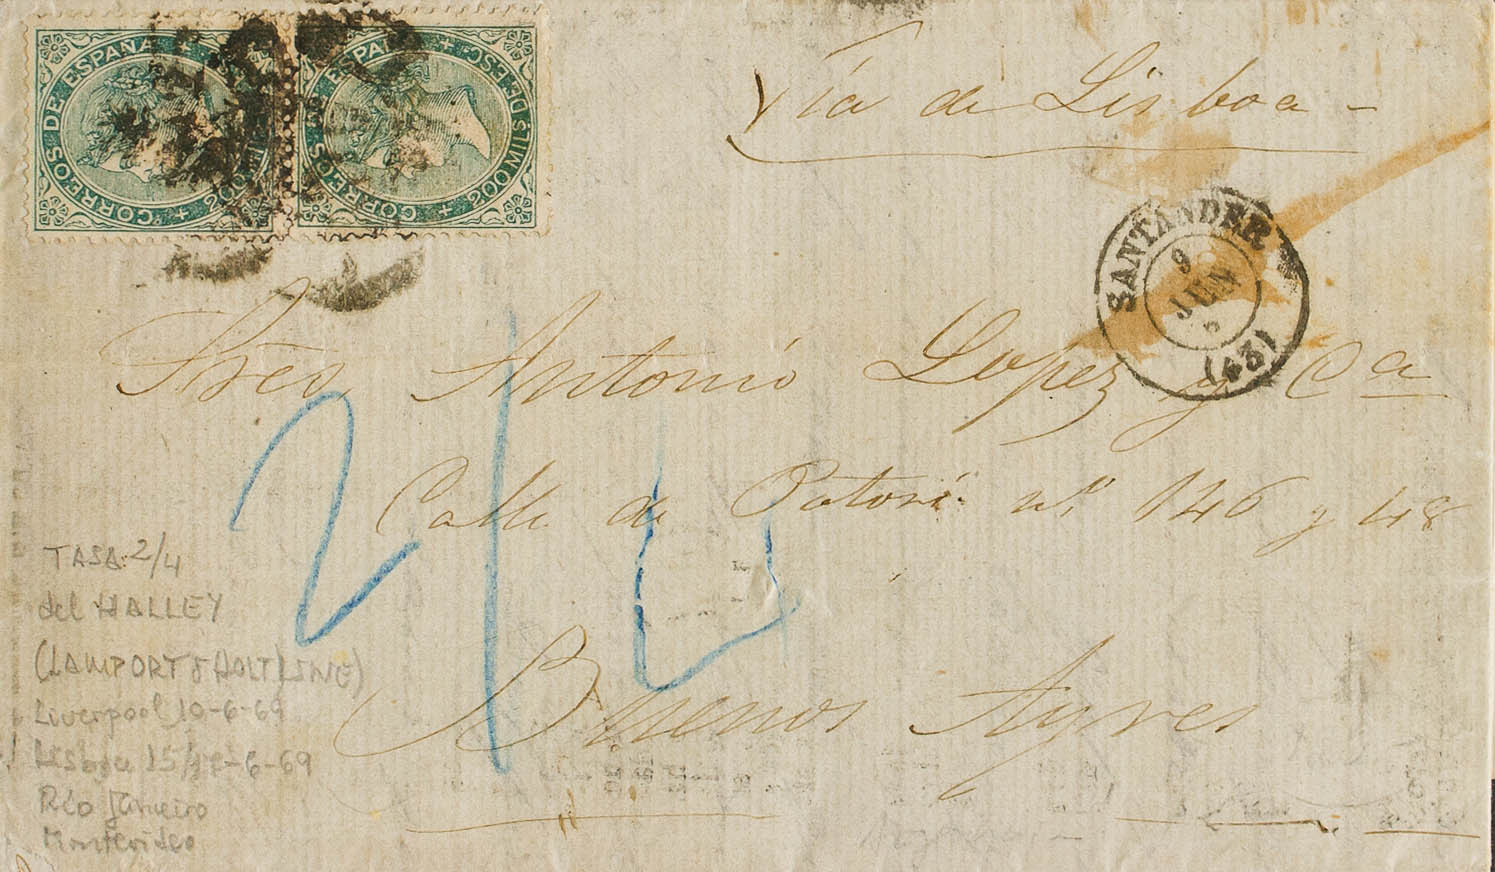 CORREOS DE ESPAÑA
CORREOS ESPA 200 MILS DE ESC.
Via de Lisboa -
SANTANDER
9
JUN
(43)
Sres Antonio Lopez y Cª
Calle de nº 146 y 48
Buenos Ayres
TASA: 2/4
del HALLEY
(LAMPORT & HOLT LINE)
Liverpool 10-6-69
Lisboa 15/17-6-69
Río Janeiro
Montevideo